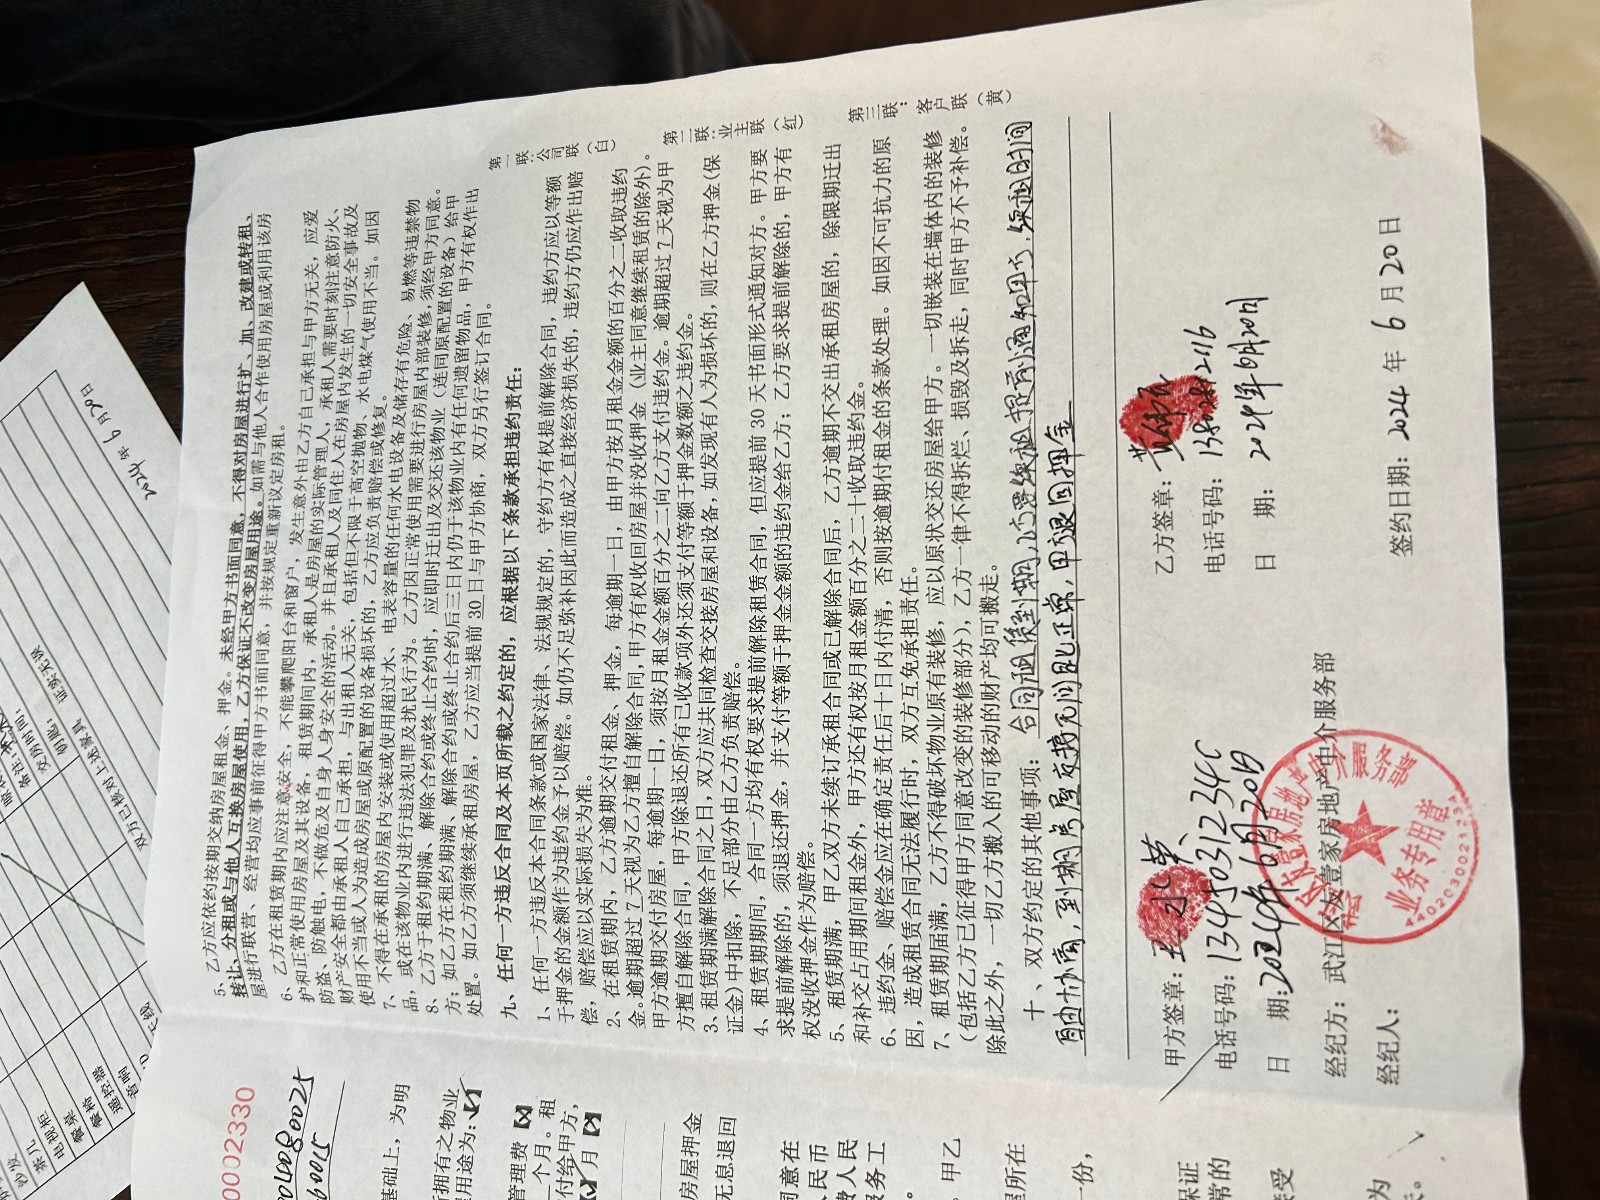 5、乙方应依约按期交纳房屋租金、押金。未经甲方书面同意，不得对房屋进行扩、加、改建或转租、
转让、分租或与他人互换房屋使用，乙方保证不改变房屋用途。如需与他人合作使用房屋或利用该房
屋进行联营、经营均应事前征得甲方书面同意，并按规定重新议定房租。
6、乙方在租赁期内应注意安全，不能攀爬阳台和窗户，发生意外由乙方自己承担与甲方无关，应爱
护和正常使用房屋及其设备，租赁期间内，承租人是房屋的实际管理人，承租人需要时刻注意防火、
防盗、防触电，不做危及自身人身安全的活动。并且承租人及同住人在房屋内发生的一切安全事故及
财产安全都由承租人自己承担，与出租人无关，包括但不限于高空抛物、水电煤气使用不当。如因
使用不当或人为造成房屋或原配置的设备损坏的，乙方应负责赔偿或修复。
7、不得在承租的房屋内安装或使用超过水、电表容量的任何水电设备及储存有危险、易燃等违禁物
品，或在该物业内进行违法犯罪及扰民行为。乙方因正常使用需要进行房屋内部装修，须经甲方同意。
8、乙方于租约期满、解除合约或终止合约时，应即时迁出及交还该物业（连同原配置的设备）给甲
方；如乙方在租约期满、解除合约或终止合约后三日内仍于该物业内有任何遗留物品，甲方有权作出
处置。如乙方须继续承租房屋，乙方应当提前 30 日与甲方协商，双方另行签订合同。
九、任何一方违反合同及本页所载之约定的，应根据以下条款承担违约责任：
1、任何一方违反本合同条款或国家法律、法规规定的，守约方有权提前解除合同，违约方应以等额
于押金的金额作为违约金予以赔偿。如仍不足弥补因此而造成之直接经济损失的，违约方仍应作出赔
偿，赔偿应以实际损失为准。
2、在租赁期内，乙方逾期交付租金、押金，每逾期一日，由甲方按月租金金额的百分之二收取违约
金。逾期超过 7 天视为乙方擅自解除合同，甲方有权收回房屋并没收押金（业主同意继续租赁的除外）。
甲方逾期交付房屋，每逾期一日，须按月租金金额百分之二向乙方支付违约金。逾期超过 7 天视为甲
方擅自解除合同，甲方除退还所有已收款项外还须支付等额于押金数额之违约金。
3、租赁期满解除合同之日，双方应共同检查交接房屋和设备，如发现有人为损坏的，则在乙方押金（保
证金）中扣除，不足部分由乙方负责赔偿。
4、租赁期期间，合同一方均有权要求提前解除租赁合同，但应提前 30 天书面形式通知对方。甲方要
求提前解除的，须退还押金，并支付等额于押金金额的违约金给乙方；乙方要求提前解除的，甲方有
权没收押金作为赔偿。
5、租赁期满，甲乙双方未续订承租合同或已解除合同后，乙方逾期不交出承租房屋的，除限期迁出
和补交占用期间租金外，甲方还有权按月租金额百分之二十收取违约金。
6、违约金、赔偿金应在确定责任后十日内付清，否则按逾期付租金的条款处理。如因不可抗力的原
因，造成租赁合同无法履行时，双方互免承担责任。
7、租赁期届满，乙方不得破坏物业原有装修，应以原状交还房屋给甲方。一切嵌装在墙体内的装修
（包括乙方已征得甲方同意改变的装修部分），乙方一律不得拆烂、损毁及拆走，同时甲方不予补偿。
除此之外，一切乙方搬入的可移动的财产均可搬走。
十、双方约定的其他事项：合同租赁到期，乙方要续租提前通知甲方，续租时间
自由协商，到期房屋交接无问题正常，甲退回押金
甲方签章：
电话号码：13450312340
日 期：2024年6月20日
经纪方：武江区友壹家房地产中介服务部
经纪人：
乙方签章：
电话号码：13808812116
日 期：2024年6月20日
签约日期：2024 年 6 月 20 日
业务专用章
第一联：公司联（白）
第二联：业主联（红）
第三联：客户联（黄）
0002330
基础上，为明
所拥有之物业
用途为：
管理费
个月。租
付给甲方，
月
房屋押金
无息退回
司意在
人民币
费人民
服务工
，甲乙
屋所在
一份，
保证
常的
接受
为
茶几
电视柜
餐桌
餐椅
遥控器
音响
2024 年 6 月 20 日